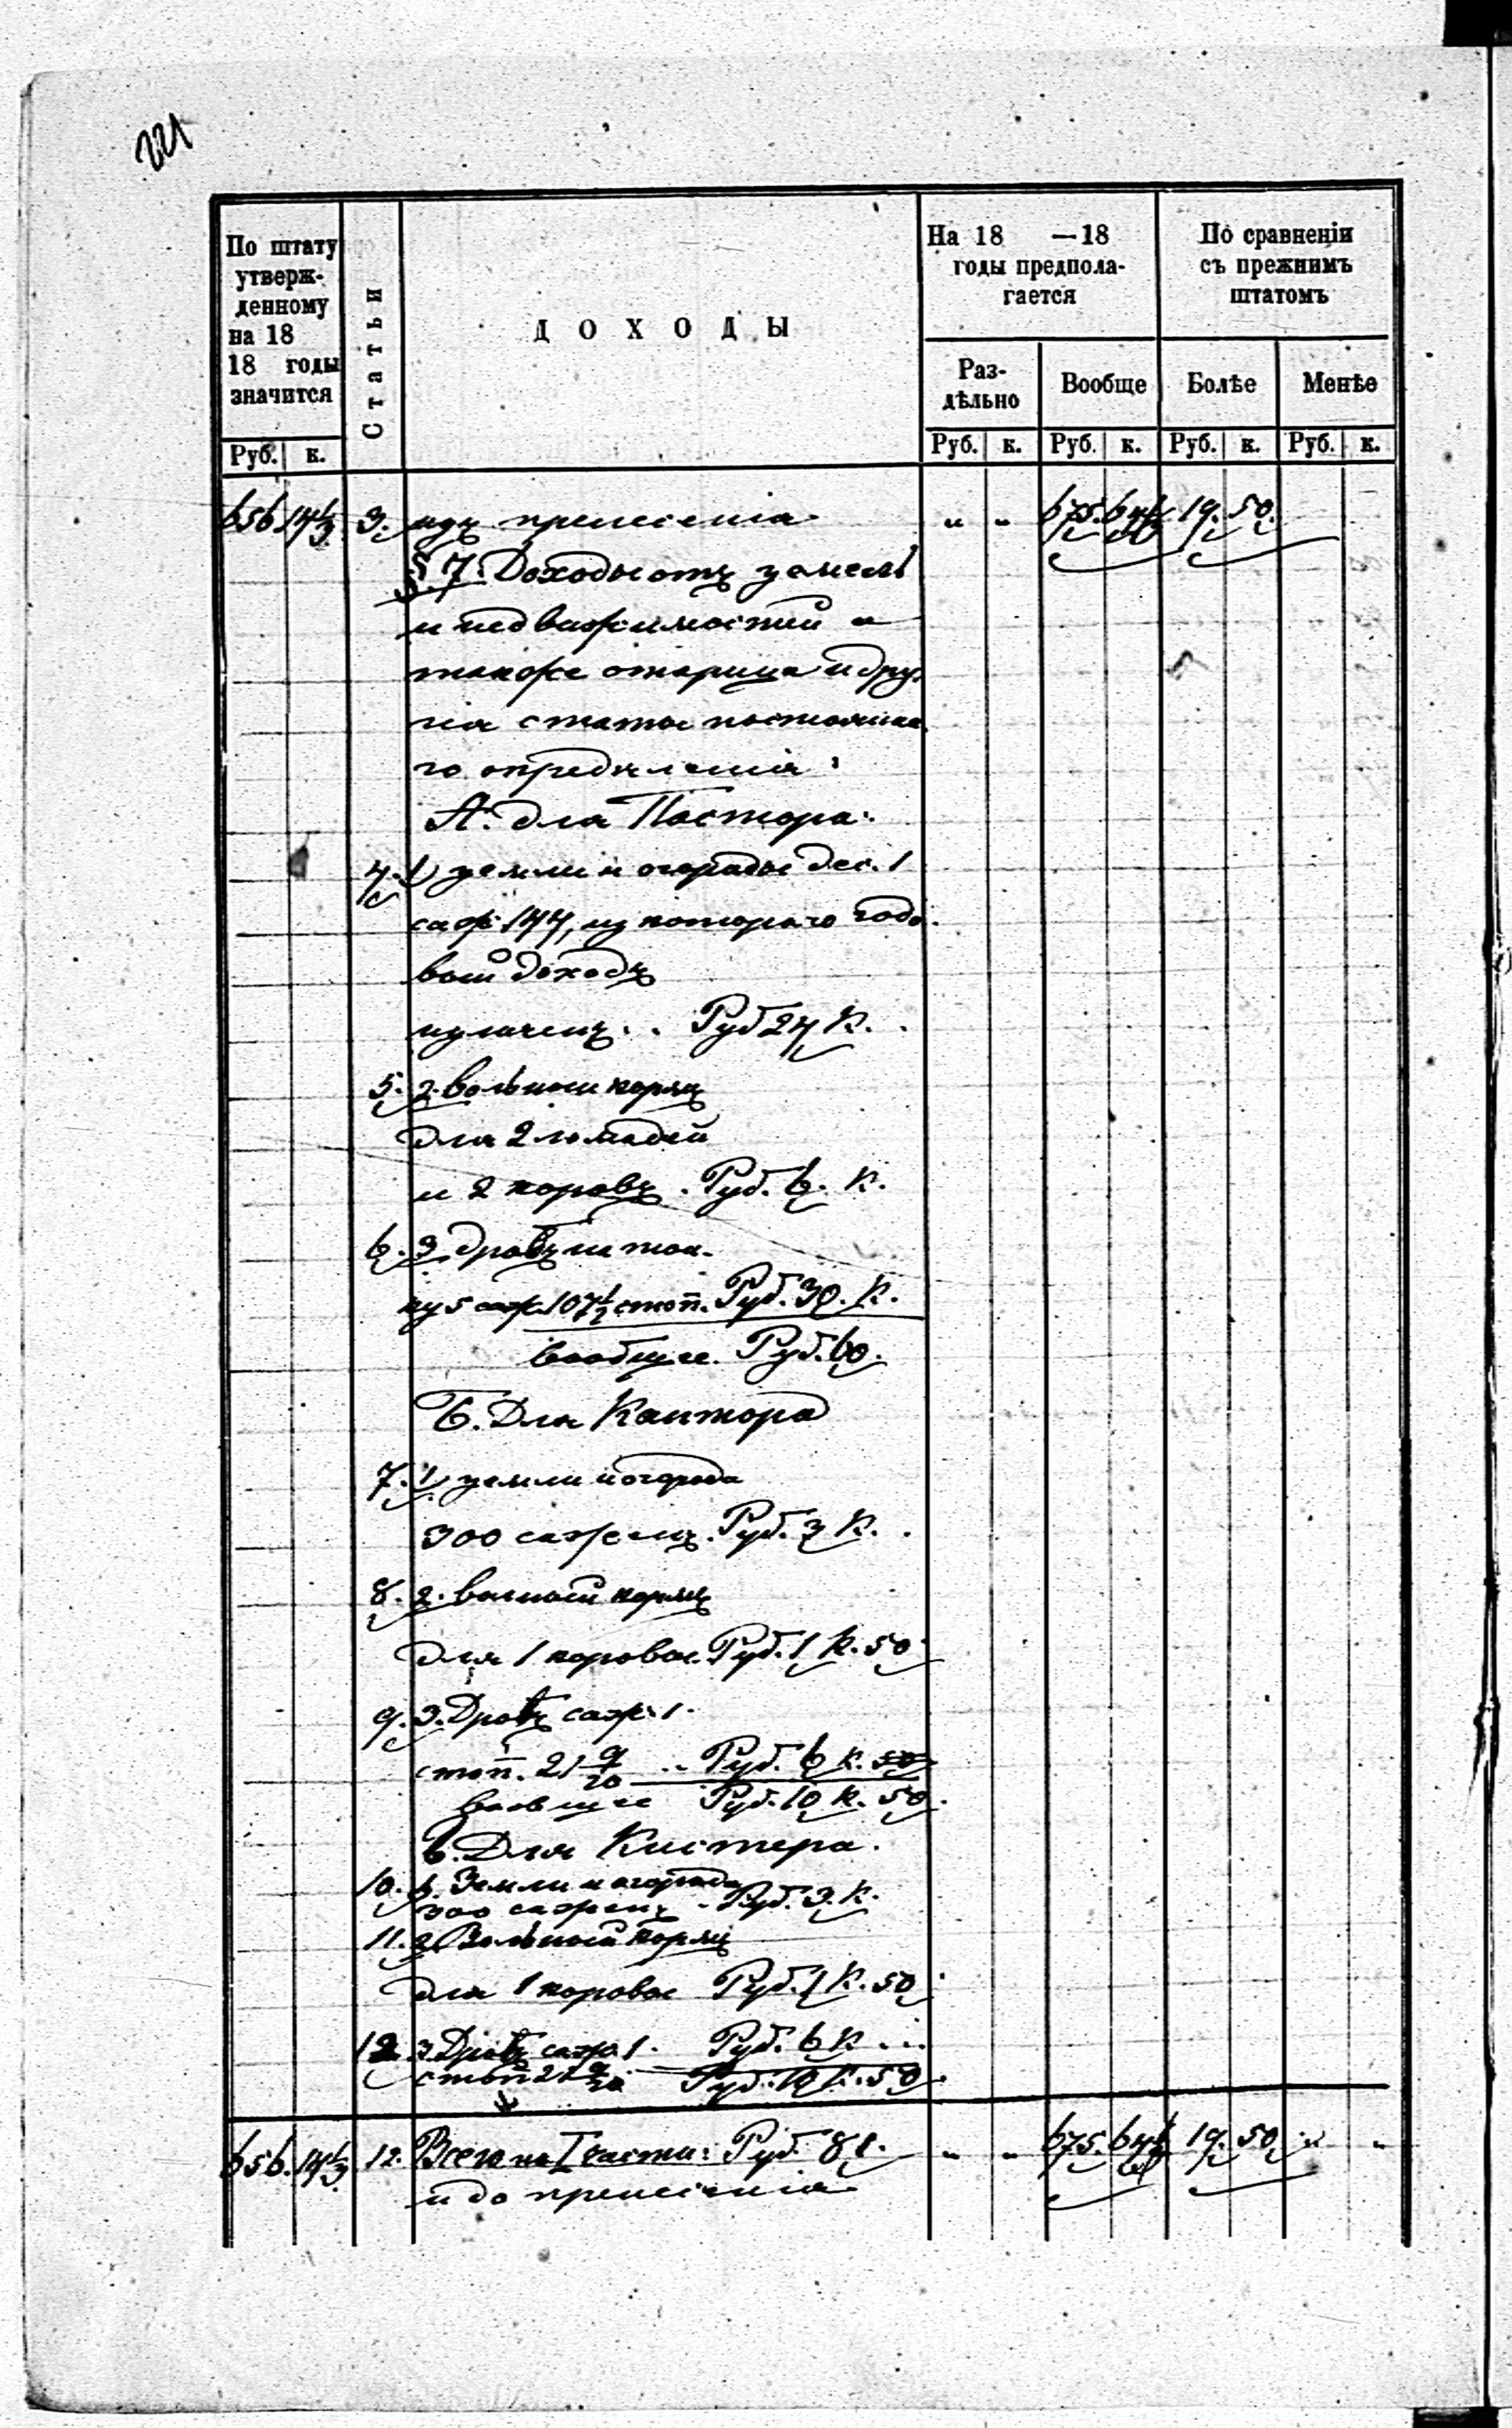 221
По штату
утверж-
денному
на 18
18 годы
значится
Статьи
ДОХОДЫ
На 18 —18
годы предпола-
гается
По сравненіи
съ прежнимъ
штатомъ
Раз-
дѣльно
Вообще
Болѣе
Менѣе
Руб. к. Руб. к. Руб. к. Руб. к. Руб. к.
656 3. пренесенія " " 675. 19. 50.
§ 7. Доходы отъ земель
и недвижимостей и
также и дру
гія статьи постоянна
го опредѣленія:
А. для Пастора:
4. 1) земли и огороды дес. 1
саж. 144, из котораго годо
вой доходъ
Руб 24 К.
5. 2. вольный кормъ
для 2 лошадей
и 2 коровъ. Руб. 6. К.
6. 3. дровъ на топ-
ку 5 саж. 107½ стоп. Руб. 30. К.
вообще. Руб. 60.
Б. Для Кантора
7. 1) земли и огорода
300 саженъ. Руб. 3 К.
8. 2. вольный кормъ
для 1 коровы. Руб. 1 К. 50
9. 3. Дровъ саж. 1.
стоп. 21 9/20 .. Руб. 6 К.
вообще Руб. 10 К. 50.
В. Для Кистера.
10. 1. Земли и огорода
300 саженъ - Руб. 3. К.
11. 2. Вольный кормъ
для 1 коровы Руб. 1 К. 50
12 3. Дровъ саж. 1. Руб. 6 К ...
стоп 21 9/20 Руб. 10 К. 50.
656. 12. Всего на I части: Руб. 81. " " 675. 19. 50. " "
и до пренесенія